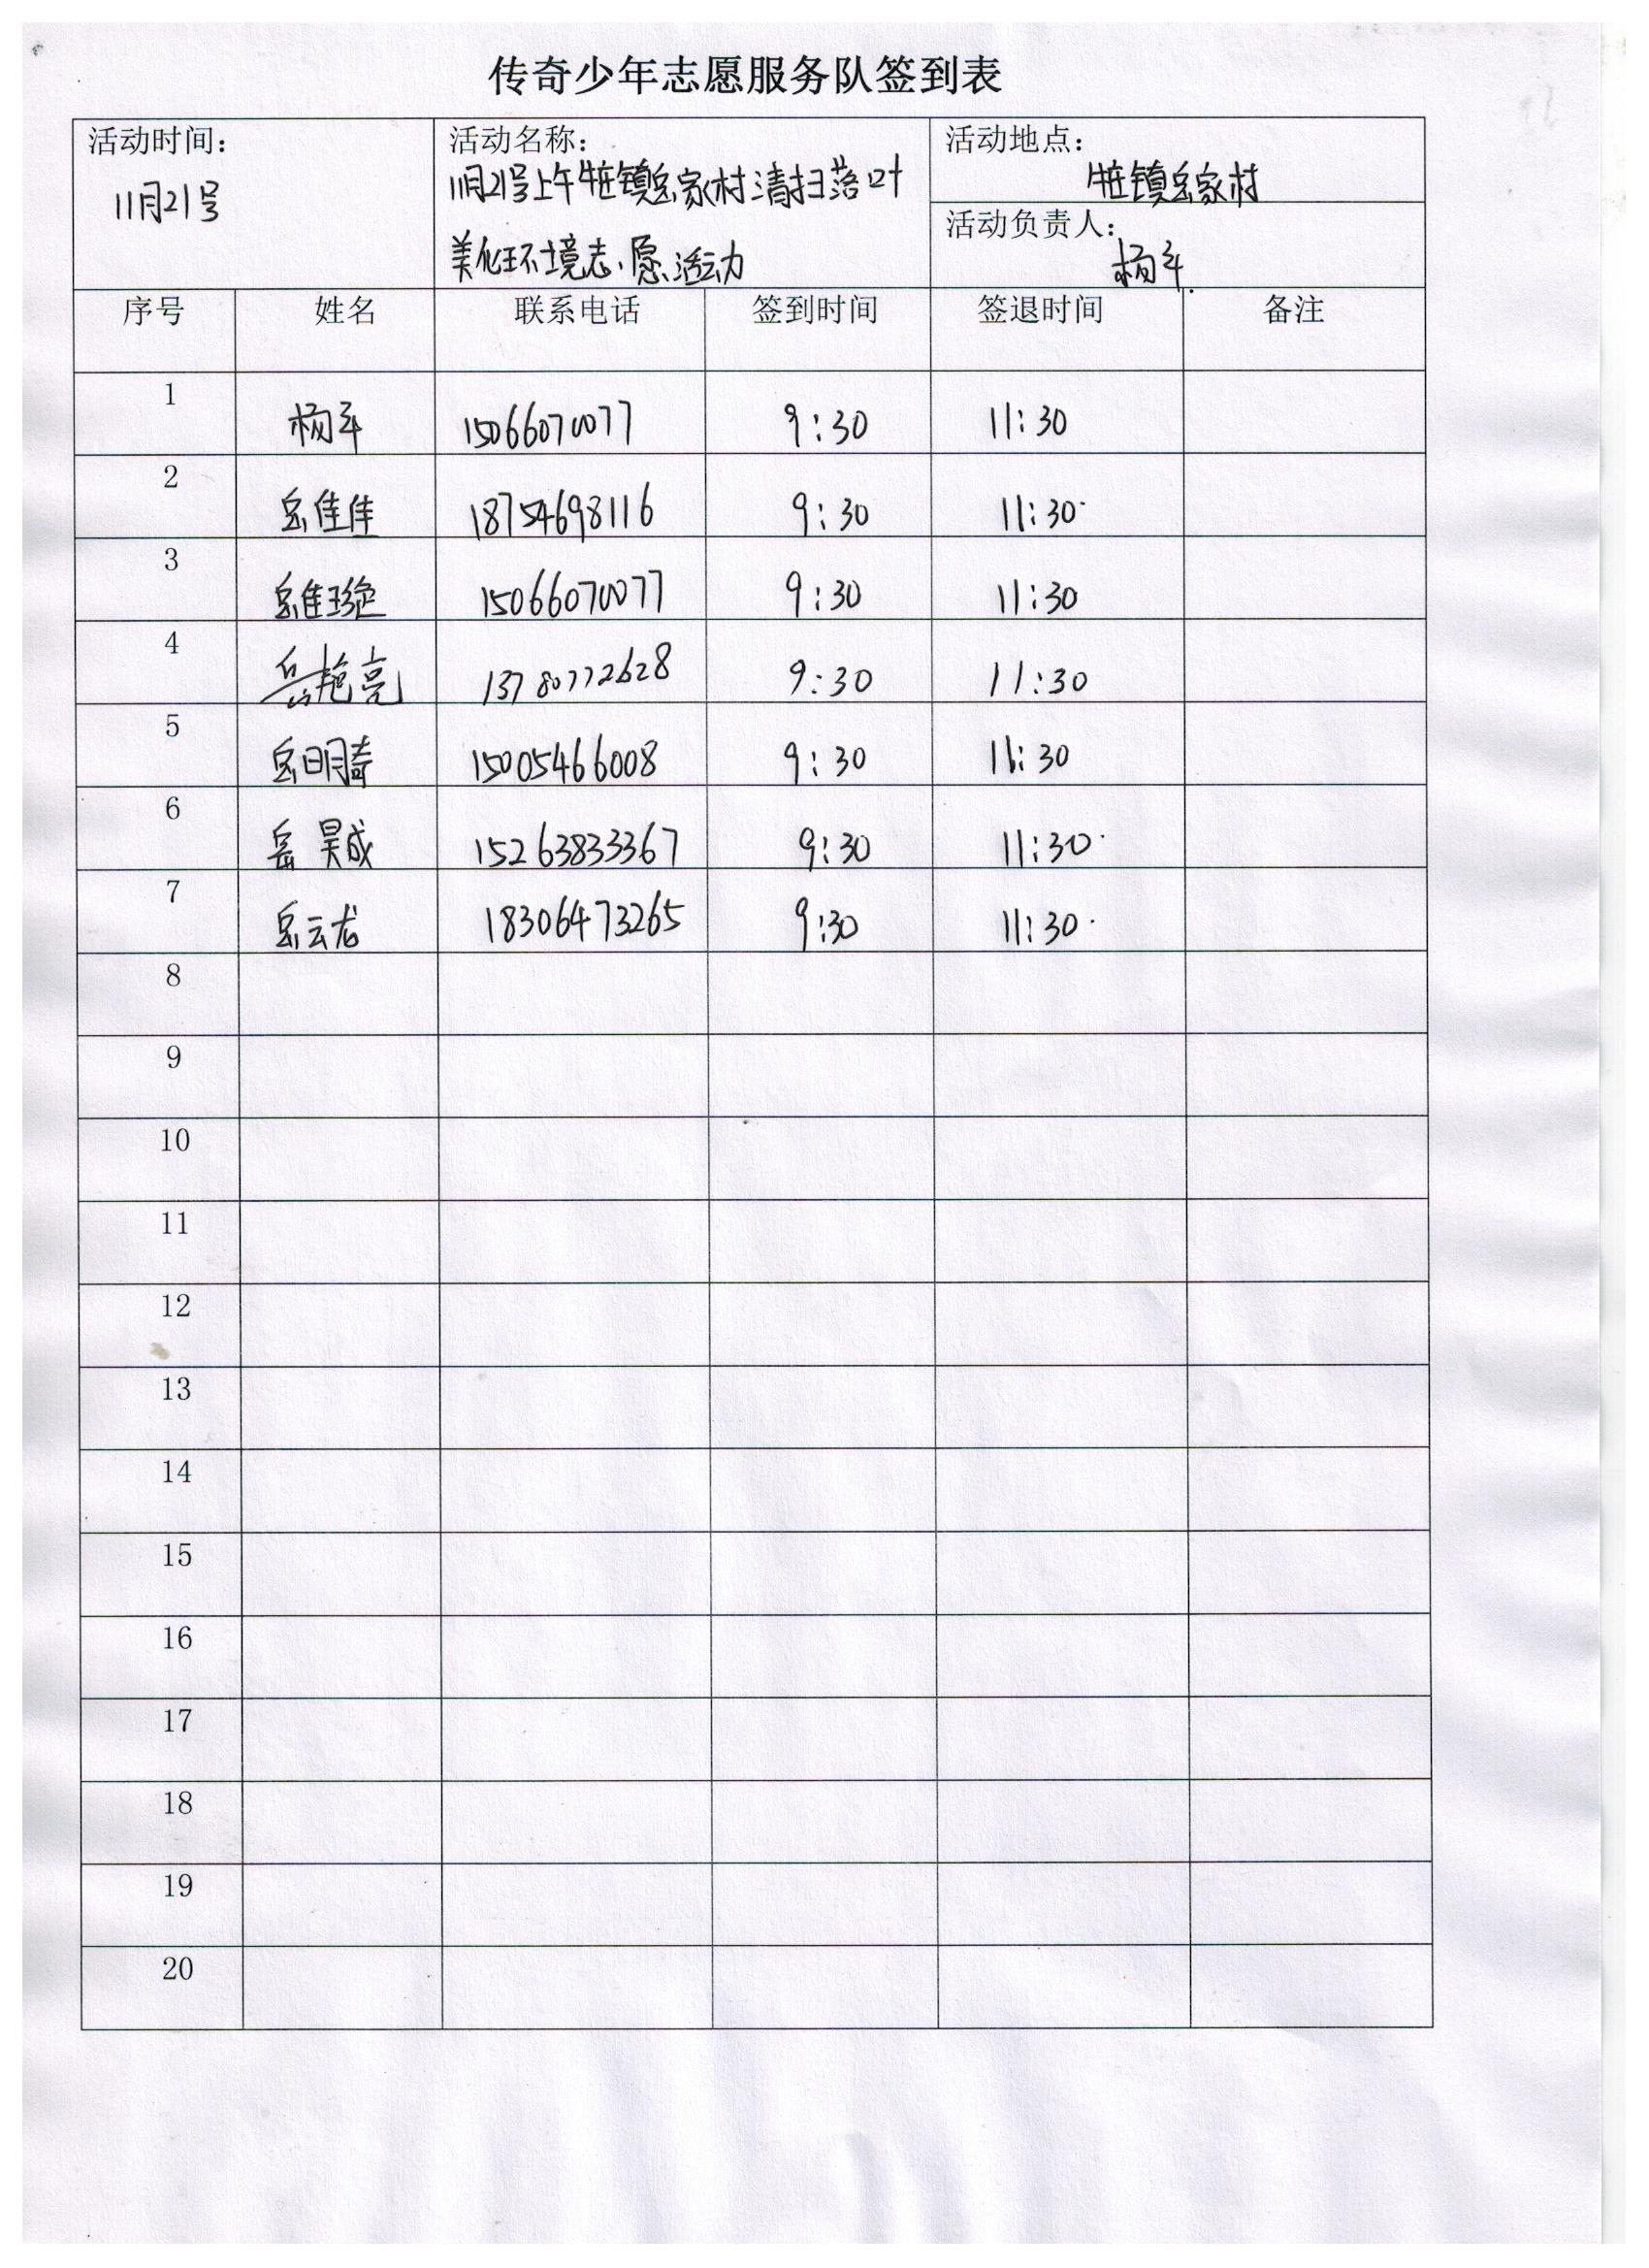 传奇少年志愿服务队签到表
活动时间：
11月21号
活动名称：
11月21号上午牛庄镇岳家村清扫落叶
美化环境志愿活动
活动地点：
牛庄镇岳家村
活动负责人：
杨平
序号 姓名 联系电话 签到时间 签退时间 备注
1 杨平 15066070077 9:30 11:30
2 岳佳佳 18754698116 9:30 11:30
3 15066070077 9:30 11:30
4 岳艳亮 13780772628 9:30 11:30
5 岳明骑 15005466008 9:30 11:30
6 岳昊成 15263833367 9:30 11:30
7 岳云龙 18306473265 9:30 11:30
8
9
10
11
12
13
14
15
16
17
18
19
20